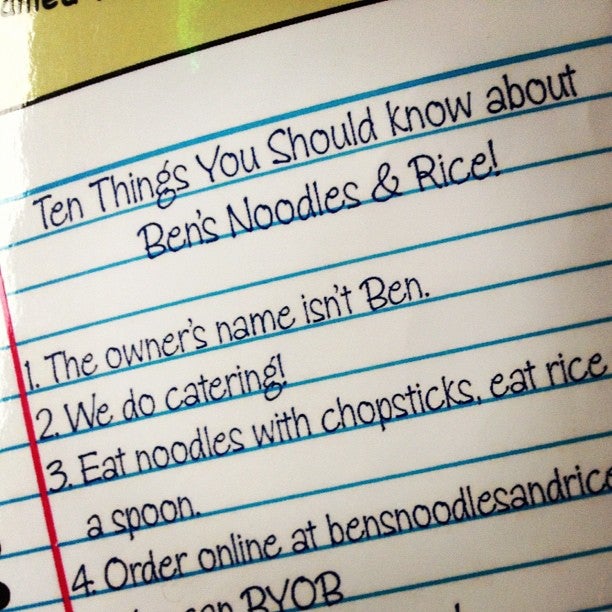 Ten Things You Should know about
Ben's Noodles & Rice!
1. The owner's name isn't Ben.
2. We do catering!
3. Eat noodles with chopsticks, eat rice
a spoon.
4. Order online at bensnoodlesandric
can BYOB